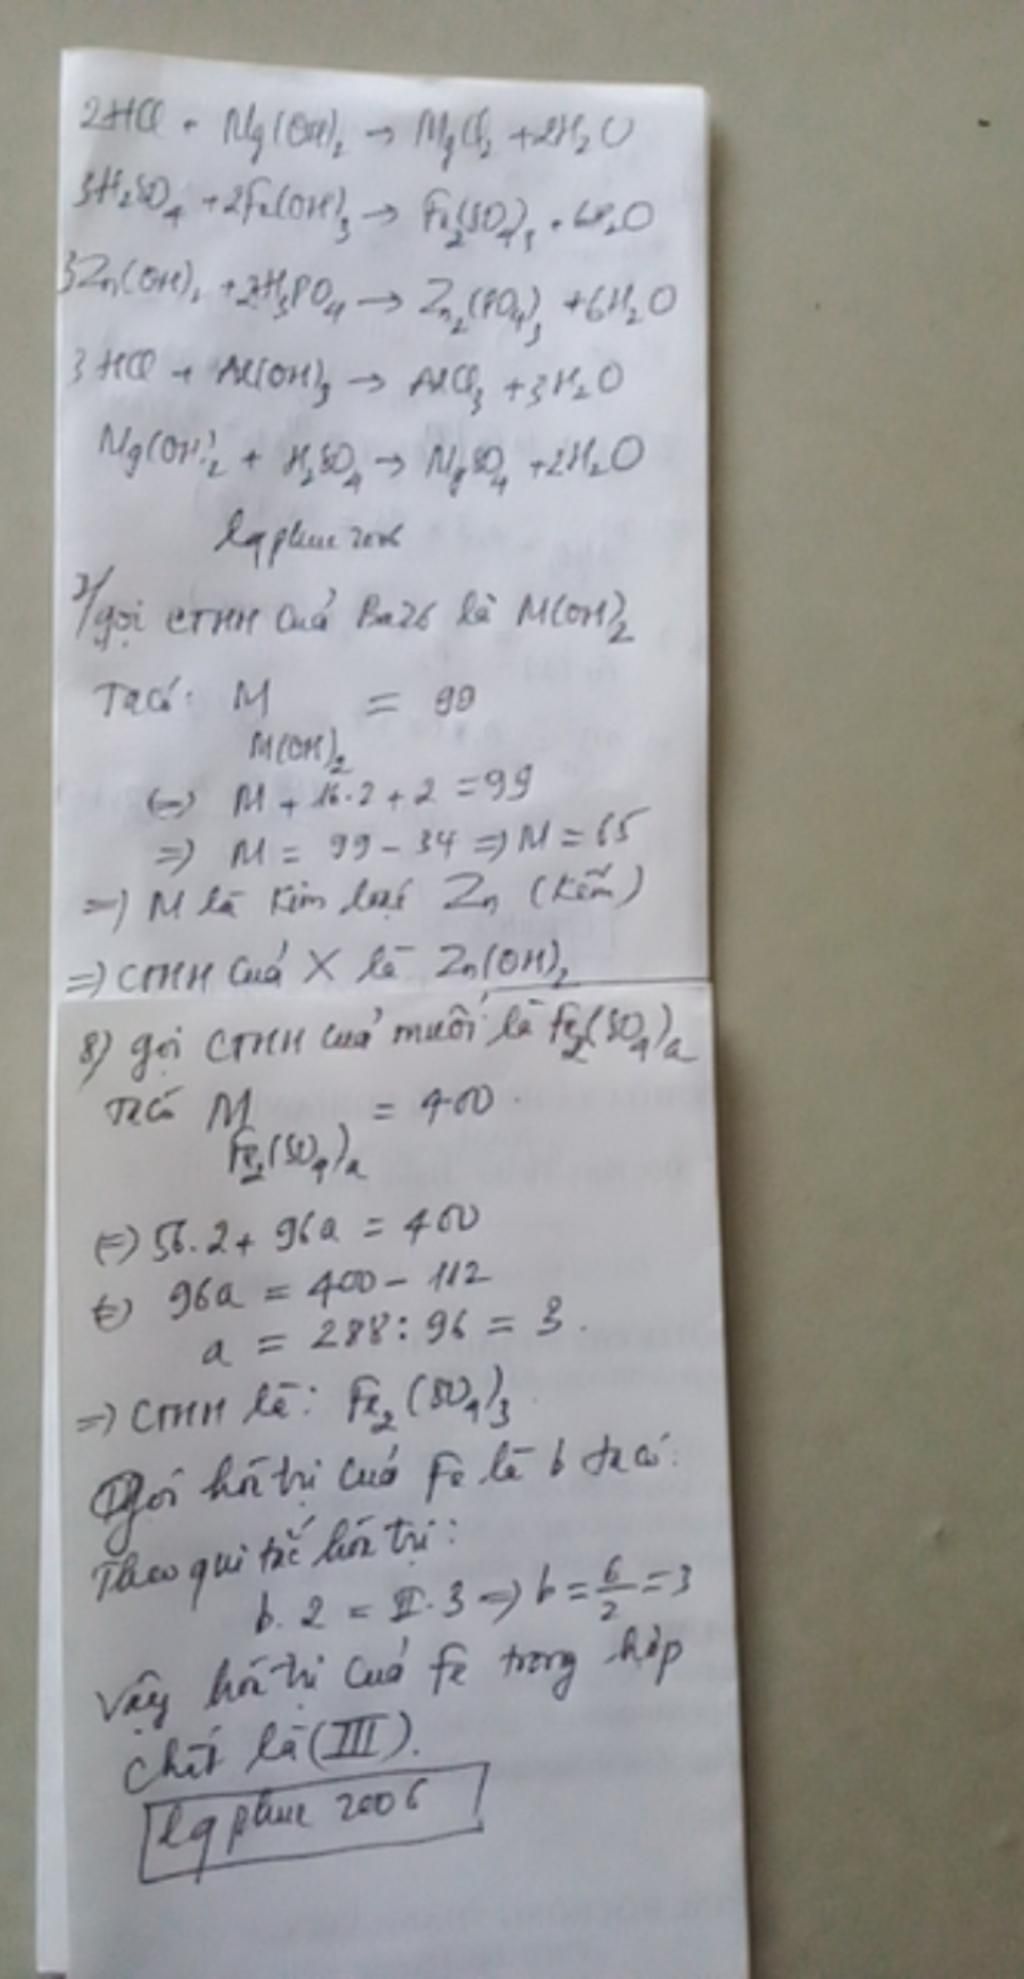 2HCl + Mg(OH)₂ → MgCl₂ + 2H₂O
3H₂SO₄ + 2Fe(OH)₃ → Fe₂(SO₄)₃ + 6H₂O
3Zn(OH)₂ + 2H₃PO₄ → Zn₂(PO₄)₃ + 6H₂O
3HCl + Al(OH)₃ → AlCl₃ + 3H₂O
Mg(OH)₂ + H₂SO₄ → MgSO₄ + 2H₂O
lqphuc2006
7/ gọi CTHH của Bazơ là M(OH)₂
Ta có: M = 99
M(OH)₂
(=) M + 16.2 + 2 = 99
=) M = 99 - 34 =) M = 65
=) M là kim loại Zn (kẽm)
=) CTHH của X là Zn(OH)₂
8) gọi CTHH của muối là Fe₂(SO₄)ₐ
Ta có M = 400
Fe₂(SO₄)ₐ
(=) 56.2 + 96a = 400
(=) 96a = 400 - 112
a = 288 : 96 = 3.
=) CTHH là: Fe₂(SO₄)₃
Gọi hóa trị của Fe là b ta có:
Theo qui tắc hóa trị:
b. 2 = II. 3 =) b = 6/2 = 3
Vậy hóa trị của Fe trong hợp
chất là (III).
lqphuc 2006